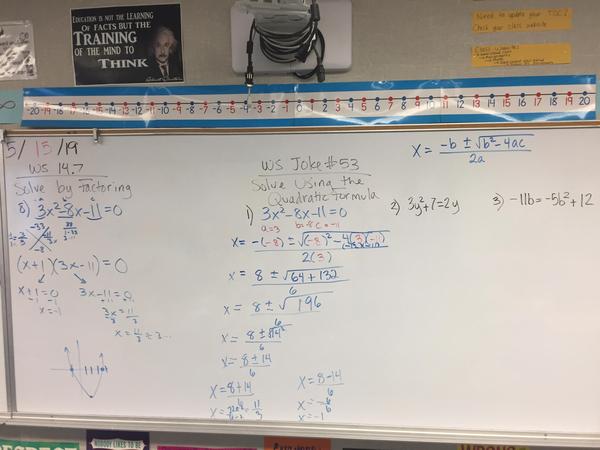 EDUCATION IS NOT THE LEARNING
OF FACTS BUT THE
TRAINING
OF THE MIND TO
THINK
Need to update your TOC?
Check your class website
Class Website
-20 -19 -18 -17 -16 -15 -14 -13 -12 -11 -10 -9 -8 -7 -6 -5 -4 -3 -2 -1 0 1 2 3 4 5 6 7 8 9 10 11 12 13 14 15 16 17 18 19 20
5/15/19
WS 14.7
Solve by factoring
8) 3x²-8x-11=0
-33
-8
(x+1)(3x-11)=0
x+1=0
-1 -1
x=-1
3x-11=0
+11 +11
3x=11
3 3
x=11/3
WS Joke #53
Solve Using the
Quadratic Formula
1) 3x²-8x-11=0
a=3 b=-8 c=-11
x= -(-8) ± √(-8)²-4(3)(-11)
2(3)
x= 8 ± √64+132
6
x= 8 ± √196
6
x= 8 ± √14²
6
x= 8±14
6
x= 8+14
6
x= 22÷2 = 11
6÷2 3
x= 8-14
6
x= -6
6
x=-1
x= -b ± √b²-4ac
2a
2) 3y²+7=2y
3) -11b=-5b²+12
NOBODY LIKES TO BE